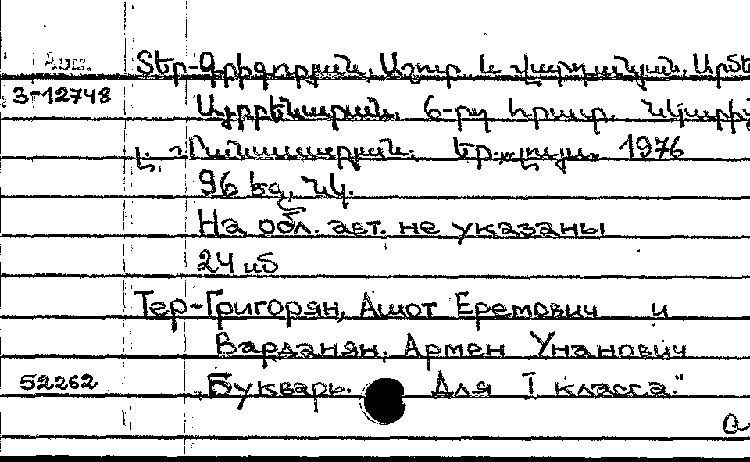 Տեր-Գրիգորյան, Աշոտ և Վարդանյան, Արմե
3-12748
Այբբենարան. 6-րդ հրատ. Նկարիչ
Լ. Մանասարյան. Եր., Լույս, 1976
96 եզ, նկ.
На обл. авт. не указаны
24 иб
Тер-Григорян, Ашот Еремович и
Варданян, Армен Унанович
52262 „Букварь. Для I класса."